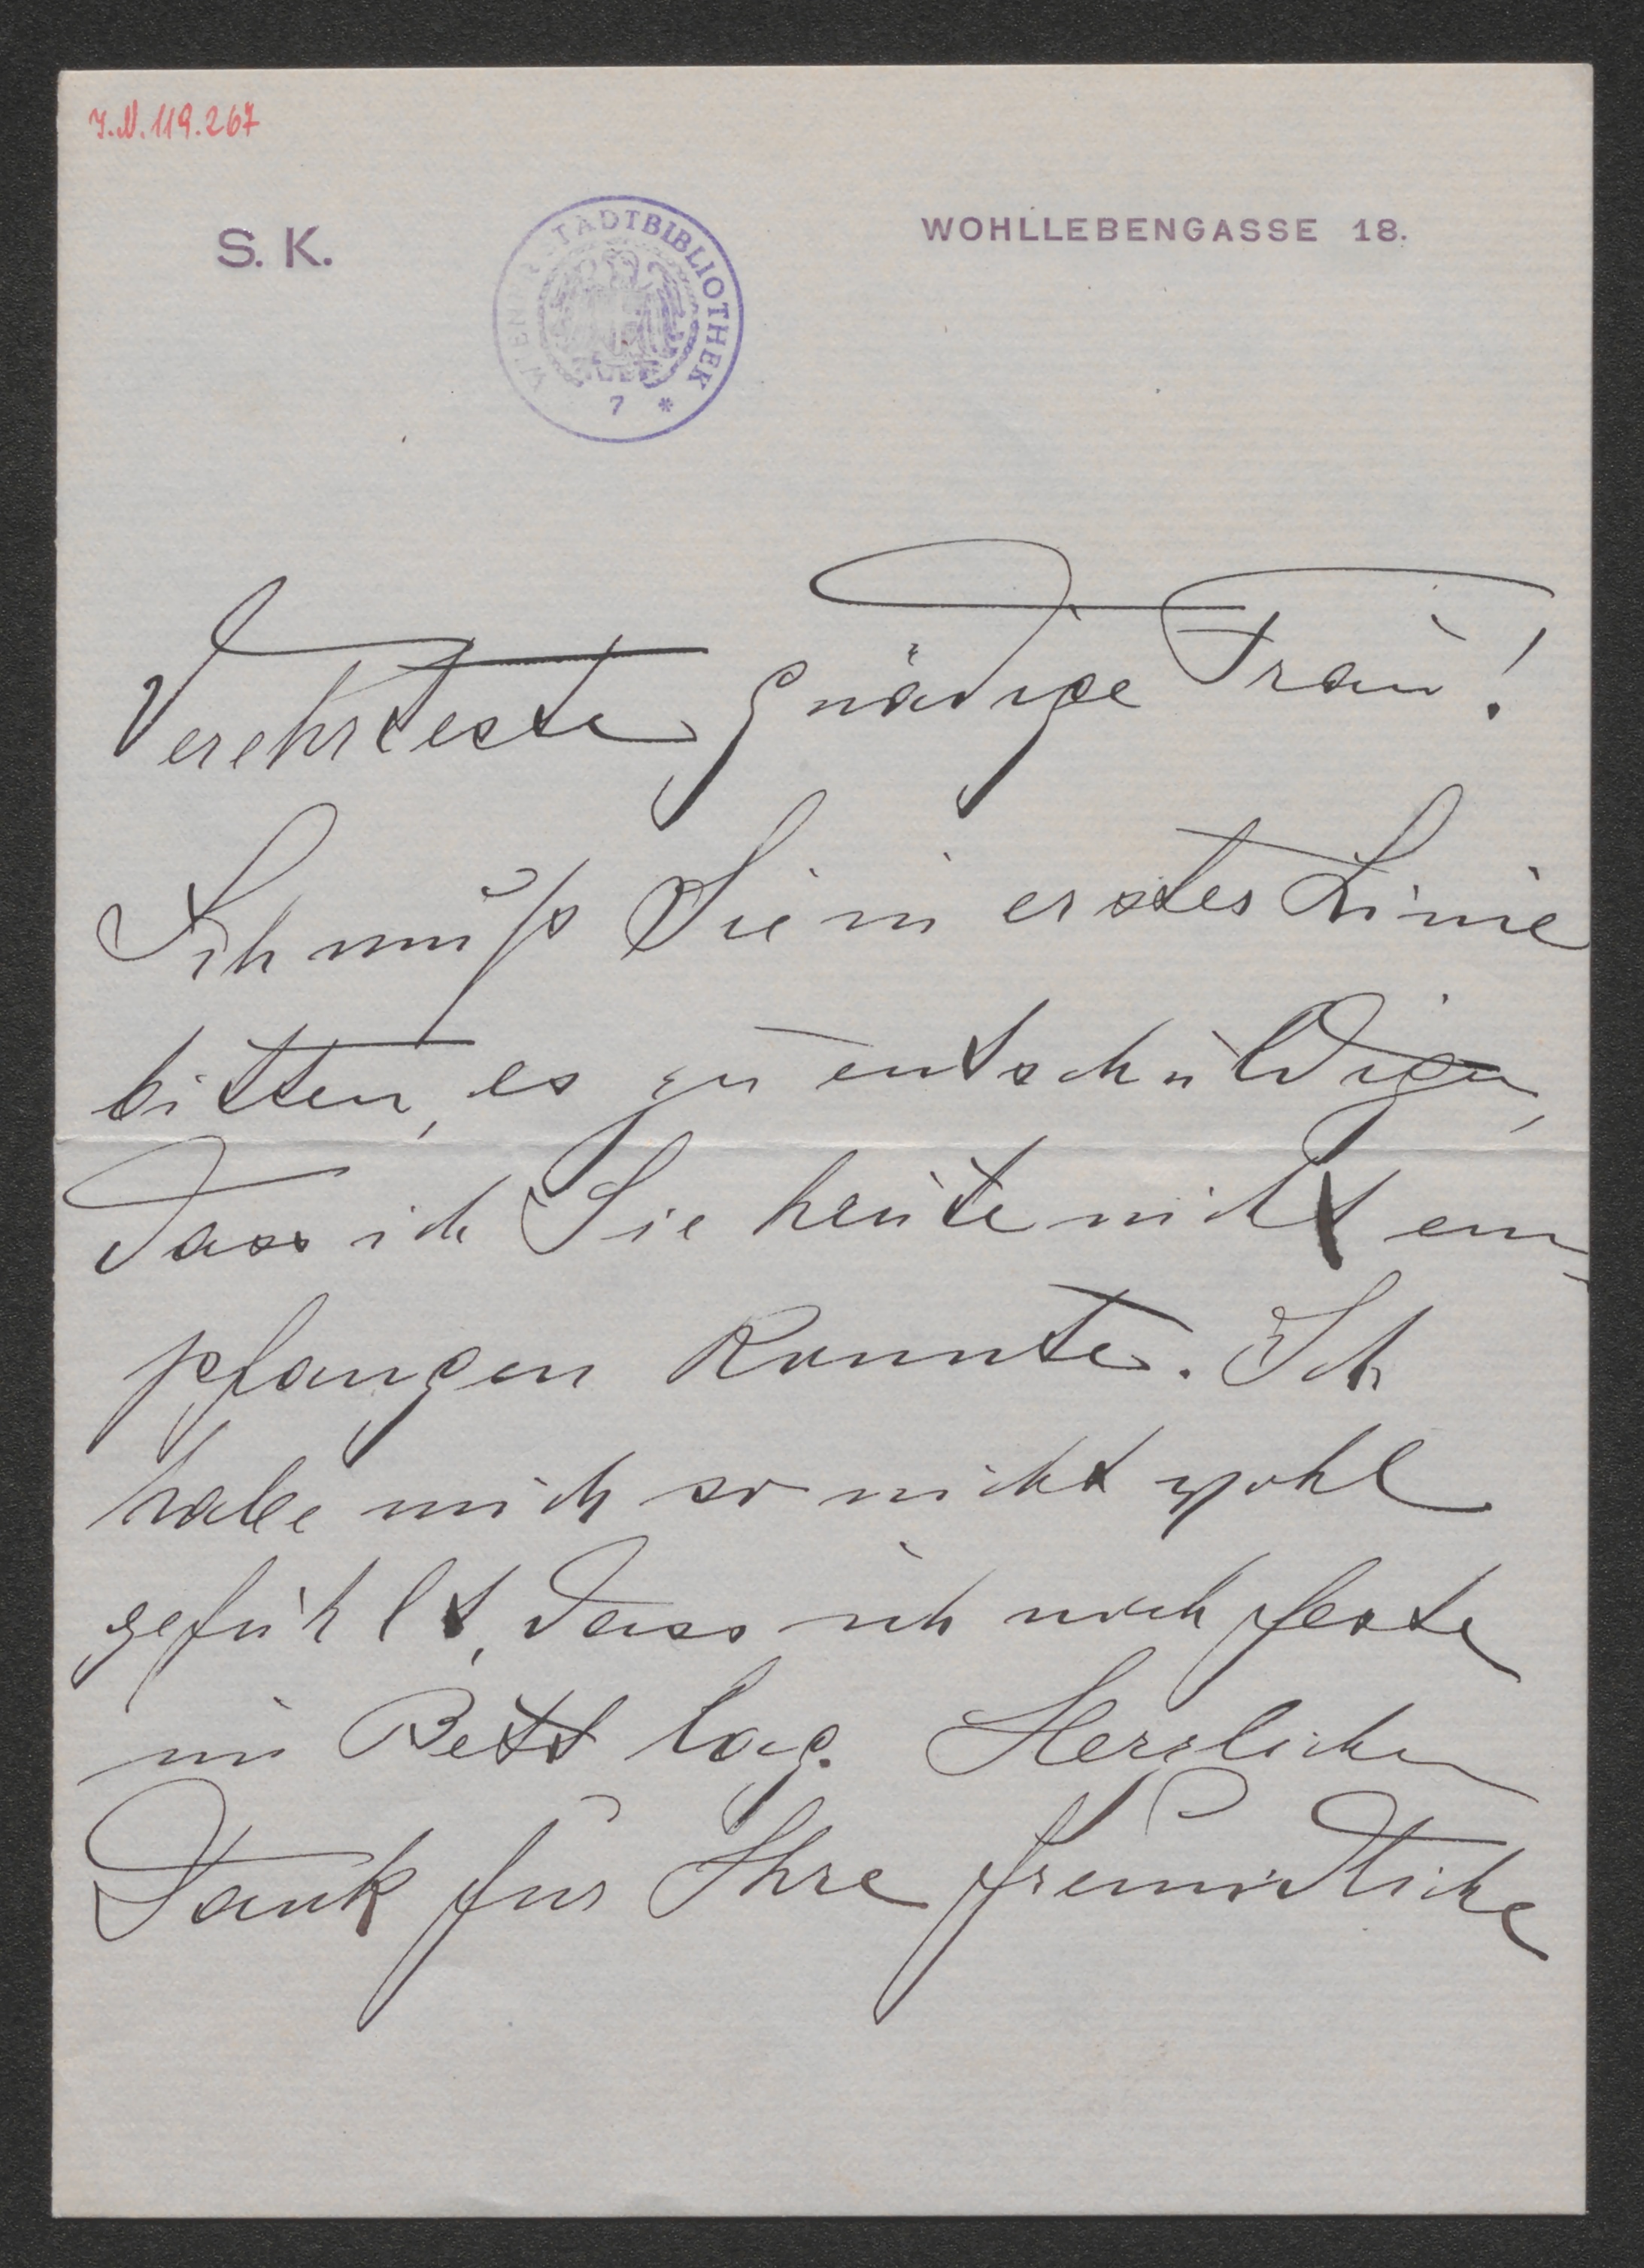 I.N. 119.267
S. K.
WIENER STADTBIBLIOTHEK
7 *
WOHLLEBENGASSE 18.
Verehrteste gnädige Frau!
Ich muß Sie in erster Linie
bitten, es zu entschuldigen,
dass ich Sie heute nicht em-
pfangen konnte. Ich
habe mich so nicht wohl
gefühlt, dass ich noch feste
im Bett lag. Herzlichen
Dank für Ihre freundliche